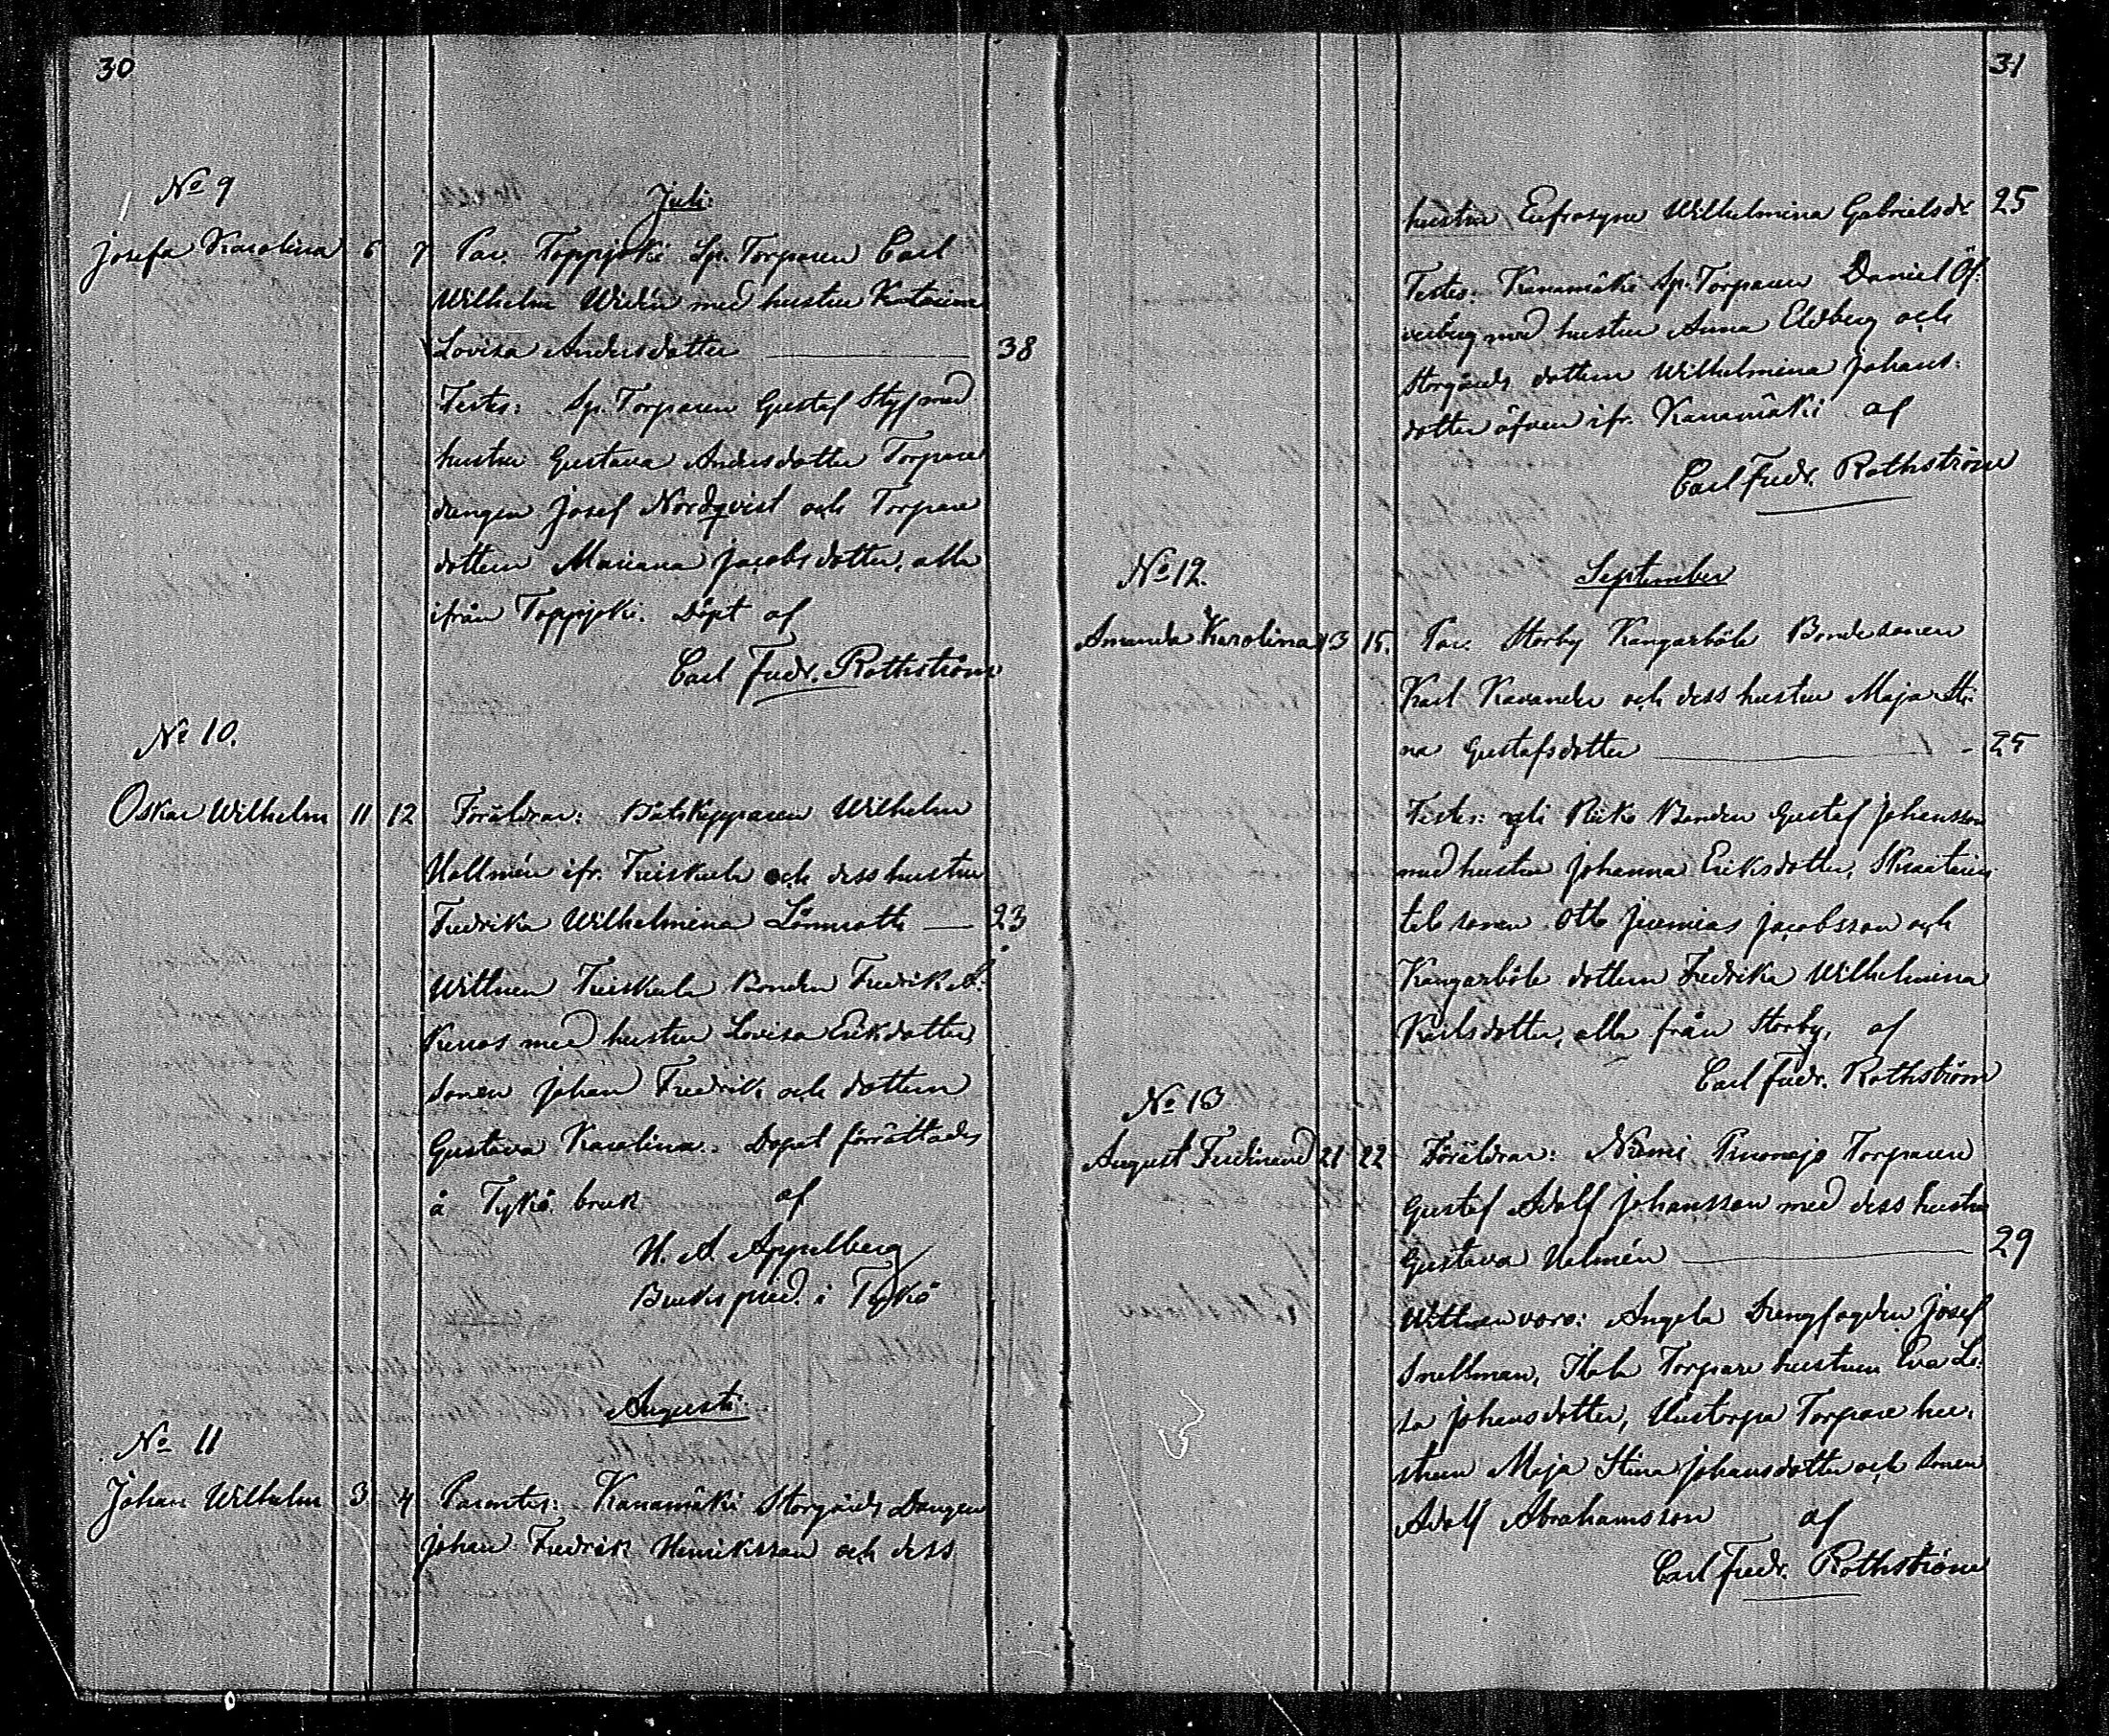 30
No 9
Juli.
Josefa Karolina 6 7 Par. Toppjoki Sp. Torparen Carl
Wilhelm Widén med hustru Katarina
Lovisa Andersdotter 38
Testes: Sp. Torparen Gustaf Styf med
hustru Gustava Andersdotter Torpare
drängen Josef Nordqvist och Torpare
dottern Mariana Jacobsdotter, alla
ifrån Toppjoki. Döpt af
Carl Fredr. Rothström
No 10.
Oskar Wilhelm 11 12 Föräldrar: Båtskepparen Wilhelm
Hallmén ifr. Treiskula och dess hustru
Fredrika Wilhelmina Lönnroth — 23
Wittnen Treiskula Bonden Fredrik
med hustru Lovisa Eriksdotter,
sonen Johan Fredrik och dottern
Gustava Karolina. Dopet förrättades
å Tykö bruk af
H. A. Appelberg
Brukspred. i Tykö
Augusti.
No 11
Johan Wilhelm 3 4 Parentes: Kanamäki Storgårds Drängen
Johan Fredrik Henriksson och dess
31
hustru Eufrosyne Wilhelmina Gabrielsdr 25
Testes: Kanamäki Sp. Torparen Daniel Öf-
verberg med hustru Anna Eldberg och
Storgårds dottern Wilhelmina Johans-
dotter äfven ifr. Kanamäki af
Carl Fredr. Rothström
No 12.
September
Amanda Karolina 13 15. Par. Storby Kangarböle Bondesonen
Karl Kavander och dess hustru Maja Sti-
na Gustafsdotter 25
Testes: Bonden Gustaf Johansson
med hustru Johanna Eriksdotter,
sonen Otto Jeremias Jacobsson och
Kangarböle dottern Fredrika Wilhelmina
Karlsdotter, alla från Storby, af
Carl Fredr. Rothström
No 13
August Ferdinand 21 22 Föräldrar: Niemi Torparen
Gustaf Adolf Johansson med dess hustru
Gustava Helmén 29
Wittnen voro: Angela Drengfogden Josef
Snellman, Torpare hustrun Eva Li-
sa Johansdotter, Torpare hu-
strun Maja Stina Johansdotter och sonen
Adolf Abrahamsson af
Carl Fredr. Rothström